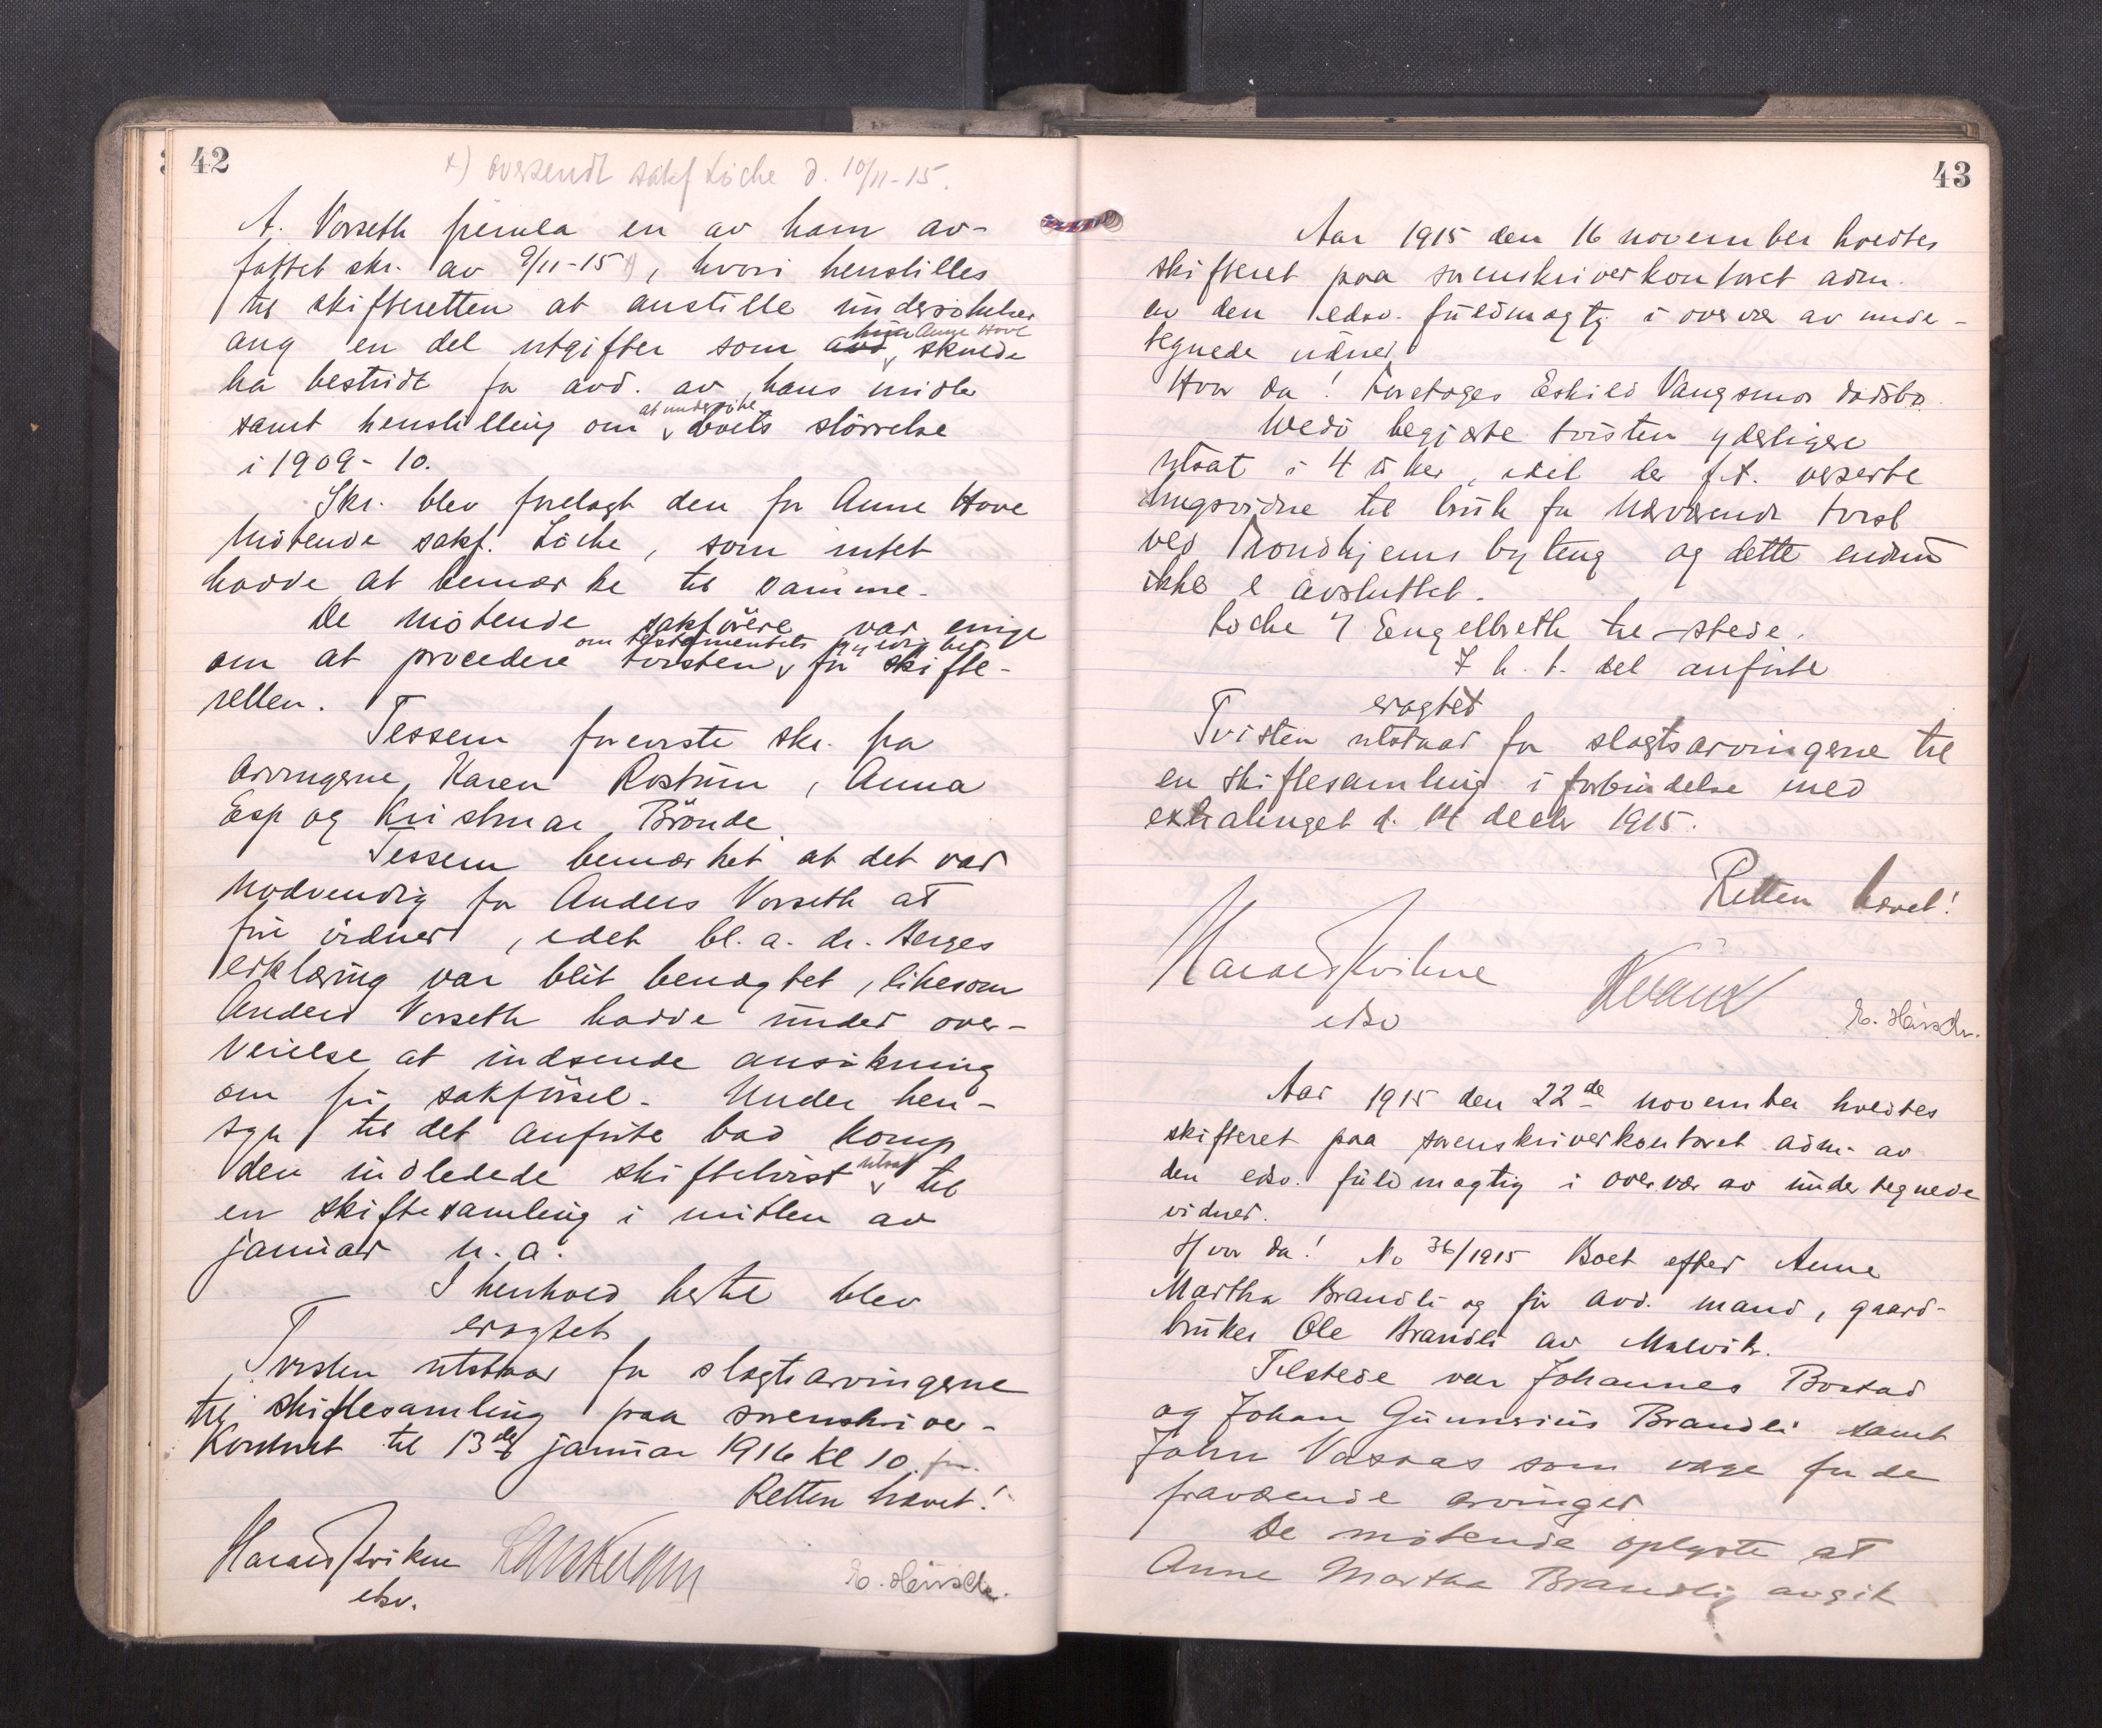 42
x) oversendt sakf Löchе d. 10/11-15.
A. Vorseth fremla en av ham av-
fattet skr. av 9/11-15 x), hvori henstilles
til skifteretten at anstille undersökelser
ang en del utgifter som avd hun Anne Hove skulde
ha bestridt for avd. av hans midler
samt henstilling om at undersöke boets störrelse
i 1909-10.
Skr. blev forelagt den for Anne Hove
mötende sakf. Löche, som intet
hadde at bemærke til samme.
De mötende sakförere var enige
om at procedere tvisten om testamentets gyldighet for skifte-
retten.
Tessem foreviste skr. fra
arvingerne, Karen Rostum, Anna
Esp og Kristmar Brönde.
Tessem bemærket at det var
nödvendig for Anders Vorseth at
före vidner, idet bl. a. dr. Berges
erklæring var blit benegtet, likesom
Anders Vorseth hadde under over-
veielse at indsende ansökning
om fri sakförsel. Under hen-
syn til det anförte bad komp
den indledede skiftetvist utsat til
en skiftesamling i mitten av
januar n. a.
I henhold hertil blev
eragtet
Tvisten utstaar for slegtsarvingerne
til skiftesamling paa sorenskriver-
kontoret til 13de januar 1916 kl 10 fm.
Retten hævet!
Harald Kvikne
edsv.
E. Hirsch.
43
Aar 1915 den 16 november holdtes
skifteret paa sorenskriverkontoret adm.
av den edsv. fuldmægtig i overvær av under-
tegnede vidner
Hvor da! Foretages Eskild Vangsmos dödsbo.
Wedö begjærte tvisten yderligere
utsat i 4 uker, idet der f.t. verserte
tingsvidne til bruk for nærværende tvist
ved Trondhjems byting og dette endnu
ikke er avsluttet.
Löche & Engelbreth tilstede.
I h. t. det anförte
eragtet
Tvisten utstaar for slegtsarvingerne til
en skiftesamling i forbindelse med
extratinget d. 14 decbr 1915.
Retten hævet!
Harald Kvikne
edsv
E. Hirsch.
Aar 1915 den 22de november holdtes
skifteret paa sorenskriverkontoret adm. av
den edsv. fuldmægtig i overvær av undertegnede
vidner.
Hvor da! No 36/1915 Boet efter Anne
Martha Brandli og för avd. mand, gaard-
bruker Ole Brandli av Malvik.
Tilstede var Johannes Bostad
og Johan Gunnerius Brandli samt
John Vasaas som verge for de
fraværende arvinger
De mötende oplyste at
Anne Martha Brandli avgik